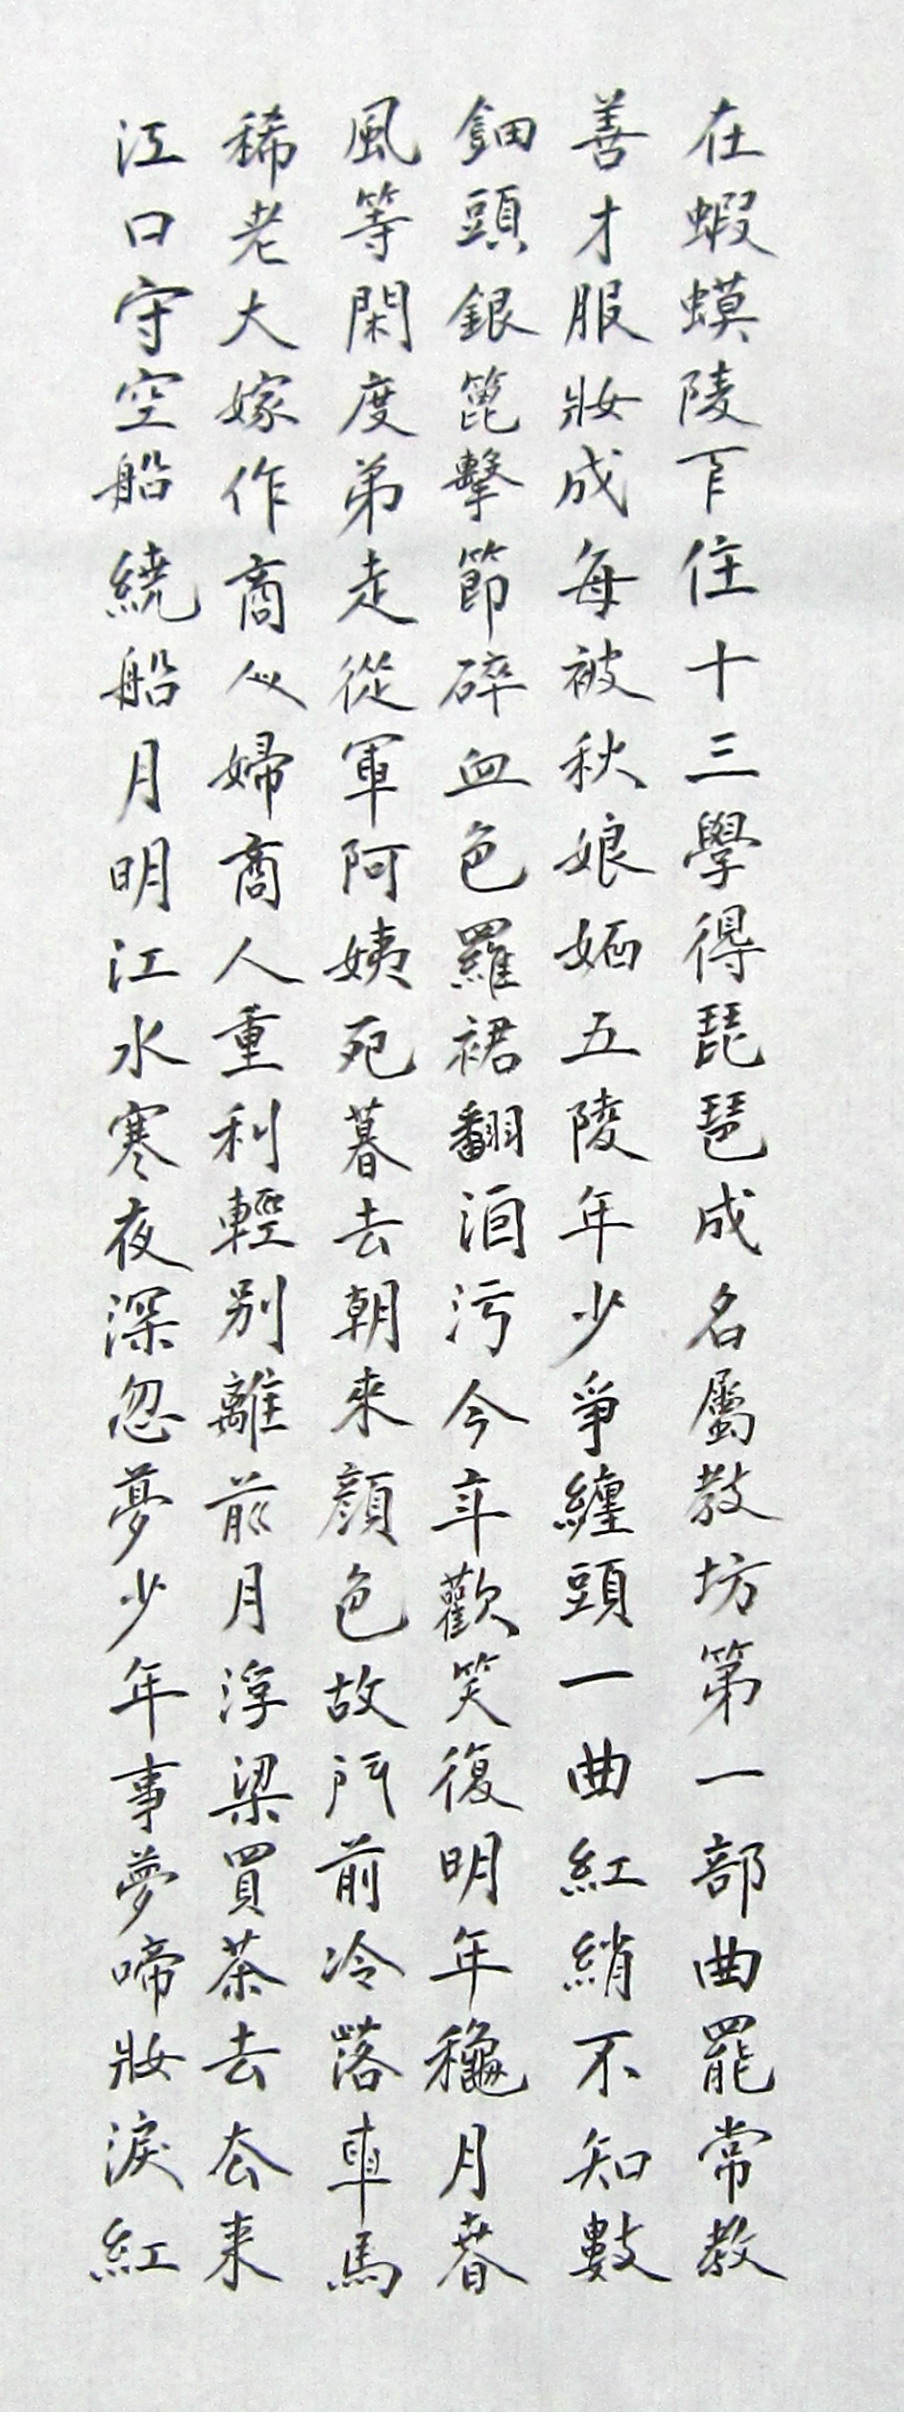 在蝦蟆陵下住十三學得琵琶成名屬教坊第一部曲罷常教
善才服妝成每被秋娘妬五陵年少爭纏頭一曲紅綃不知數
鈿頭銀篦擊節碎血色羅裙翻酒污今年歡笑復明年秋月春
風等閑度弟走從軍阿姨死暮去朝來顔色故門前冷落車馬
稀老大嫁作商人婦商人重利輕別離前月浮梁買茶去去來
江口守空船繞船月明江水寒夜深忽夢少年事夢啼妝淚紅